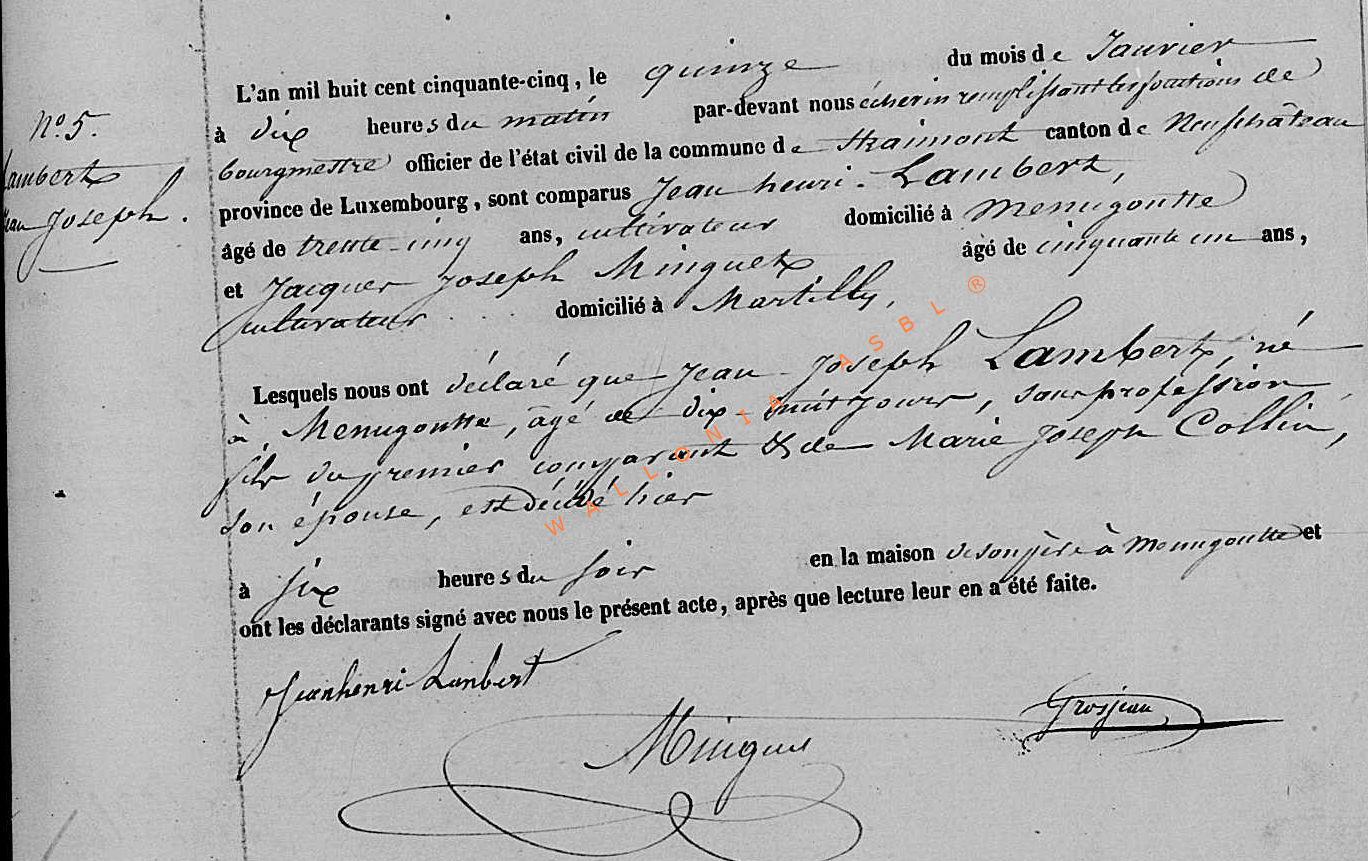 N° 5.
Lambert
Jean Joseph.
L'an mil huit cent cinquante-cinq, le quinze du mois de Janvier
à dix heures du matin par-devant nous échevin remplissant les fonctions de
bourgmestre officier de l'état civil de la commune de Straimont canton de Neufchâteau
province de Luxembourg, sont comparus Jean henri Lambert,
âgé de trente-cinq ans, cultivateur domicilié à Menugoutte
et Jacques Joseph Minguet âgé de cinquante un ans,
cultivateur domicilié à Martilly,
Lesquels nous ont déclaré que Jean Joseph Lambert, né
à Menugoutte, âgé de dix-huit jours, sans profession
fils du premier comparant & de Marie Joseph Collin,
son épouse, est décédé hier
à six heures du soir en la maison de son père à Menugoutte et
ont les déclarants signé avec nous le présent acte, après que lecture leur en a été faite.
Jean henri Lambert
Grosjean
Minguet
WALLONIA ASBL ®